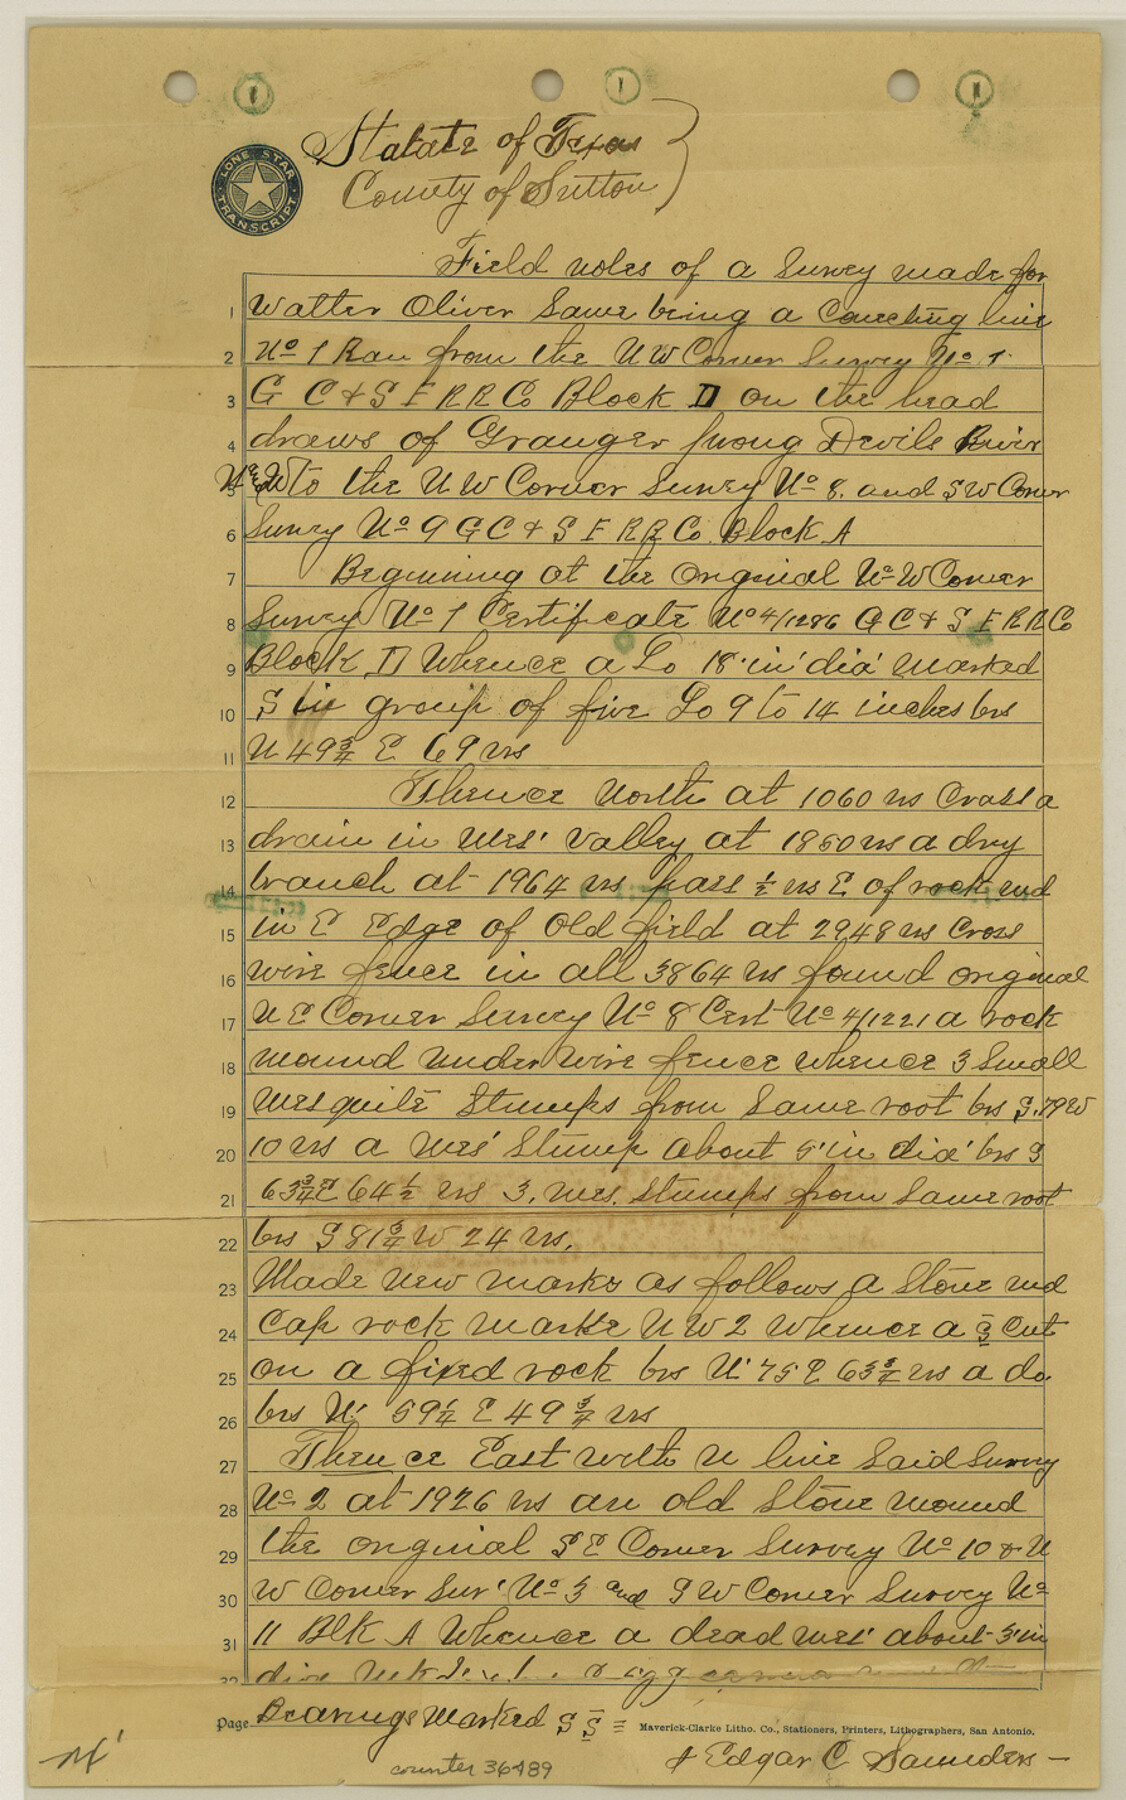 Statate of Texas
County of Sutton
LONE STAR TRANSCRIPT
Field notes of a Survey made for
1 Walter Oliver Same being a Conecting line
2 No 1 Ran from the N W Corner Survey No 1
3 G C & S F R R Co Block D on the head
4 draws of Granger prong Devils River
5 to the N W Corner Survey No 8. and S W Corner
6 Survey No 9 G C & S F R R Co Block A
7 Beginning at the Original N W Corner
8 Survey No 1 Certificate No 4/1286 G C & S F R R Co
9 Block D Whence a Lo 18 in' dia' marked
10 S in group of five Lo 9 to 14 inches brs
11 N 49 3/4 E 69 vrs
12 Thence North at 1060 vrs Cross a
13 drain in Mes' Valley at 1850 vrs a dry
14 branch at 1964 vrs pass 1/2 vrs E of rock md
15 in E Edge of Old field at 2948 vrs Cross
16 wire fence in all 3864 vrs found original
17 N E Corner Survey No 8 Cert No 4/1221 a rock
18 mound under wire fence whence 3 Small
19 Mesquite Stumps from Same root brs S. 79 W
20 10 vrs a Mes' Stump about 5 in dia' brs S
21 63 3/4 E 64 1/2 vrs 3. Mes. Stumps from Same root
22 brs S 81 3/4 W 24 vrs.
23 Made New marks as follows a Stone md
24 Cap rock marke N W 2 Whence a S Cut
25 on a fixed rock brs N. 75 E 63 3/4 vrs a do.
26 brs N. 59 1/4 E 49 3/4 vrs
27 Thence East with N line Said Survey
28 No 2 at 1926 vrs an old Stone Mound
29 the original S E Corner Survey No 10 & N
30 W Corner Sur' No 3 and S W Corner Survey No
31 11 Blk A Whence a dead Mes' about 3 in
32
Page Bearings Marked S S ≡
Maverick-Clarke Litho. Co., Stationers, Printers, Lithographers, San Antonio.
& Edgar C Saunders —
counter 36489